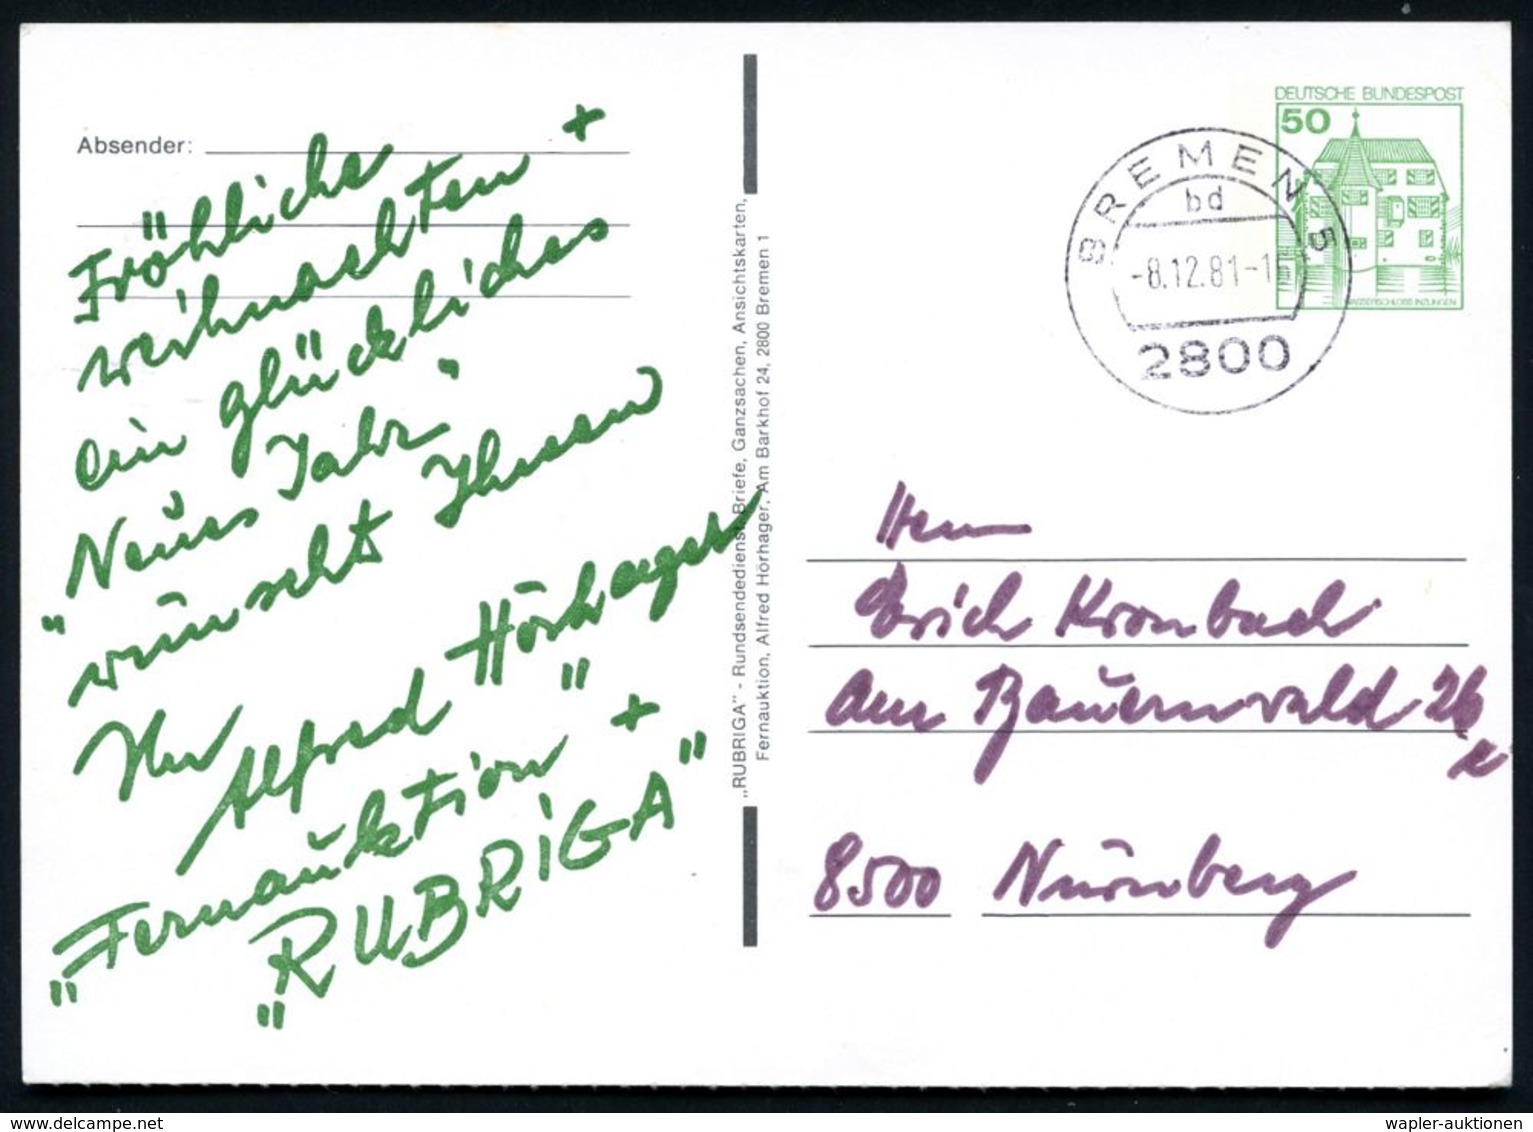 Absender:
Fröhliche
Weihnachten +
ein glückliches
"Neues Jahr"
wünscht Ihnen
Ihr Alfred Hörhager
"Fernauktion" +
"RUBRIGA"
„RUBRIGA" - Rundsendedienst, Briefe, Ganzsachen, Ansichtskarten,
Fernauktion, Alfred Hörhager, Am Barkhof 24, 2800 Bremen 1
DEUTSCHE BUNDESPOST
50
WASSERSCHLOSS INZLINGEN
BREMEN 5
bd
-8.12.81-1
2800
Herrn
Erich Kronbach
Am Bauernwald 26
8500 Nürnberg
wapler-auktionen